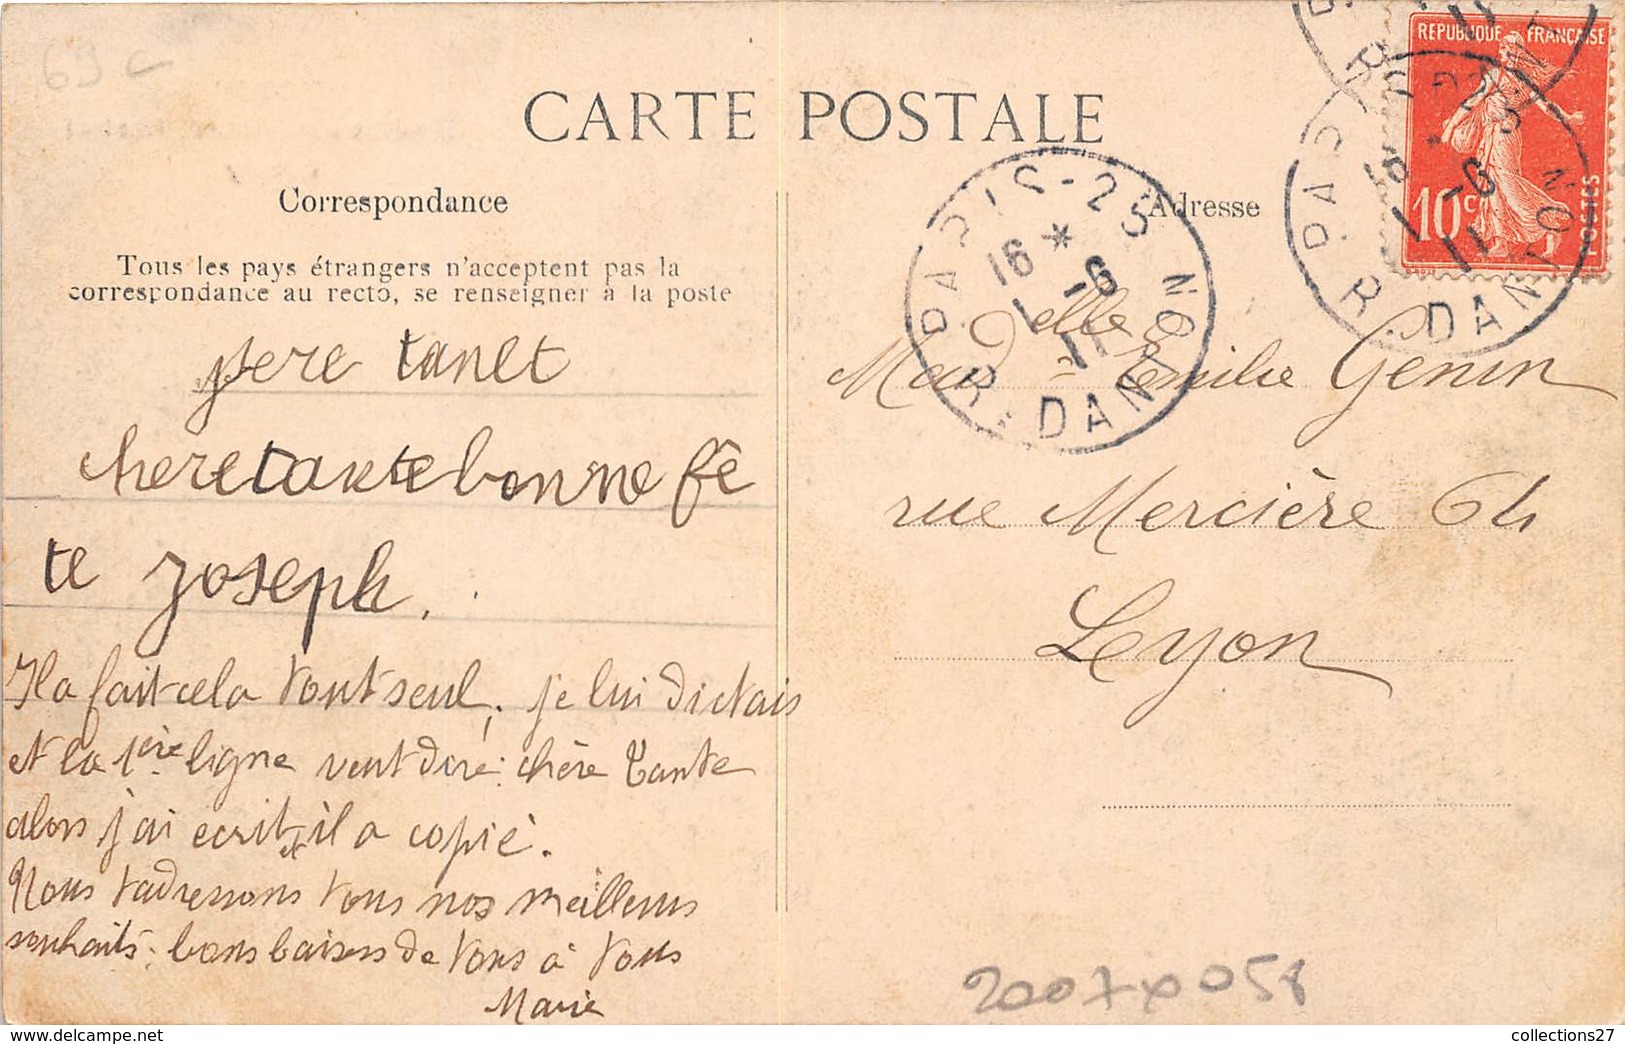 69 c
CARTE POSTALE
Correspondance
Tous les pays étrangers n'acceptent pas la
correspondance au recto, se renseigner à la poste
pere tanet
chere tante bonne fê
te joseph.
Il a fait cela tout seul, je lui dictais
et la 1ère ligne veut dire: chère Tante
alors j'ai ecrit et il a copié.
Nous t'adressons tous nos meilleurs
souhaits; bons baisers de tous à tous
Marie
Adresse
REPUBLIQUE FRANÇAISE
10 c
POSTES
PARIS-25
16 * 1-6
11
R. DANTON
PARIS-25
16 * 1-6
11
R. DANTON
Melle Emilie Genin
rue Mercière 64
Lyon
2007x058
collections27